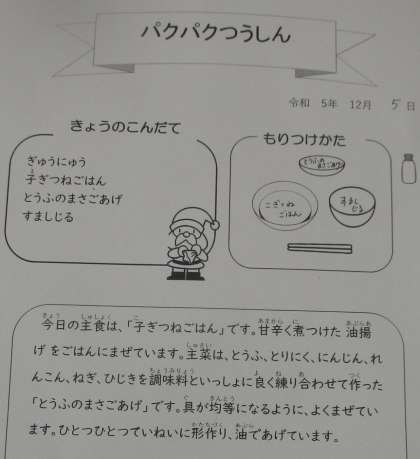 パクパクつうしん
令和 5年 12月 5日
きょうのこんだて
ぎゅうにゅう
子ぎつねごはん
とうふのまさごあげ
すましじる
もりつけかた
とうふのまさごあげ
こぎつねごはん
すましじる
今日の主食は、「子ぎつねごはん」です。甘辛く煮つけた 油揚
げ をごはんにまぜています。主菜は、とうふ、とりにく、にんじん、れ
んこん、ねぎ、ひじきを調味料といっしょに良く練り合わせて作った
「とうふのまさごあげ」です。具が均等になるように、よくまぜてい
ます。ひとつひとつていねいに形作り、油であげています。